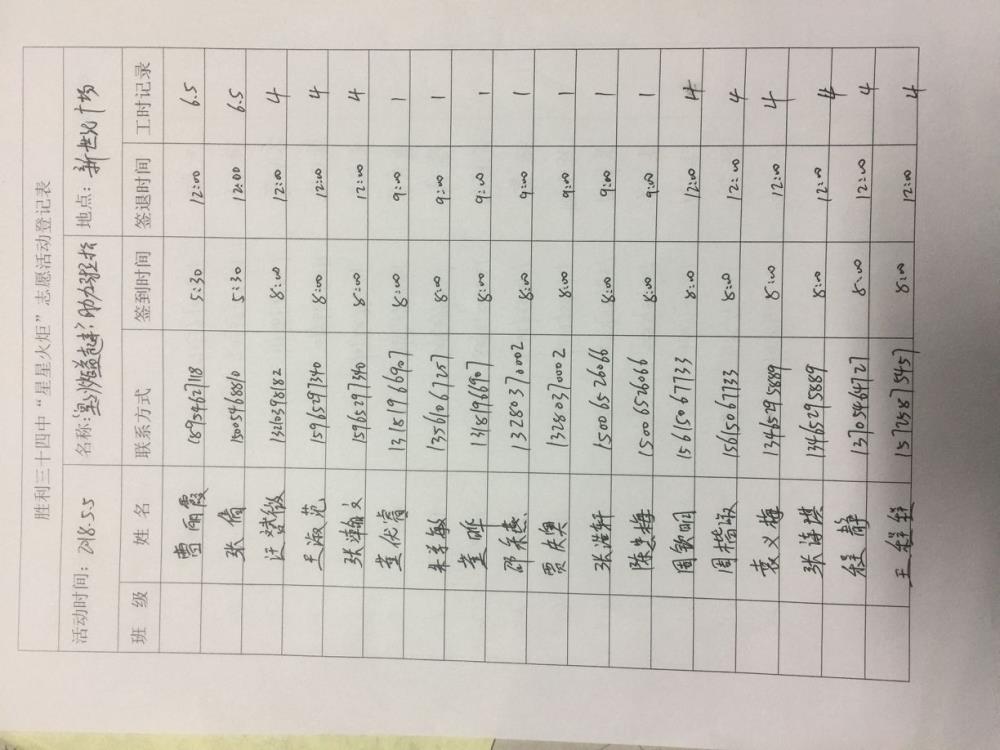 胜利三十四中“星星火炬”志愿活动登记表
活动时间：2018.5.5 名称：益起来，助力环 地点：新世纪广场
班 级 姓 名 联系方式 签到时间 签退时间 工时记录
曹丽霞 18954627118 5:30 12:00 6.5
张倩 15005468810 5:30 12:00 6.5
汪斌傲 13210398182 8:00 12:00 4
王淑苑 15965297340 8:00 12:00 4
张瀚文 15965297340 8:00 12:00 4
董依睿 13181966907 8:00 9:00 1
朱美敏 13561067257 8:00 9:00 1
董晔 13181966907 8:00 9:00 1
邵乐燕 13280370002 8:00 9:00 1
贾庆寅 13280370002 8:00 9:00 1
张浩轩 15006526066 8:00 9:00 1
陈忠梅 15006526066 8:00 9:00 1
周钦明 15615067733 8:00 12:00 4
周楷淑 15615067733 8:00 12:00 4
袁义梅 13465295889 8:00 12:00 4
张海淇 13465295889 8:00 12:00 4
程静 13705464727 8:00 12:00 4
王程钰 15725875457 8:00 12:00 4